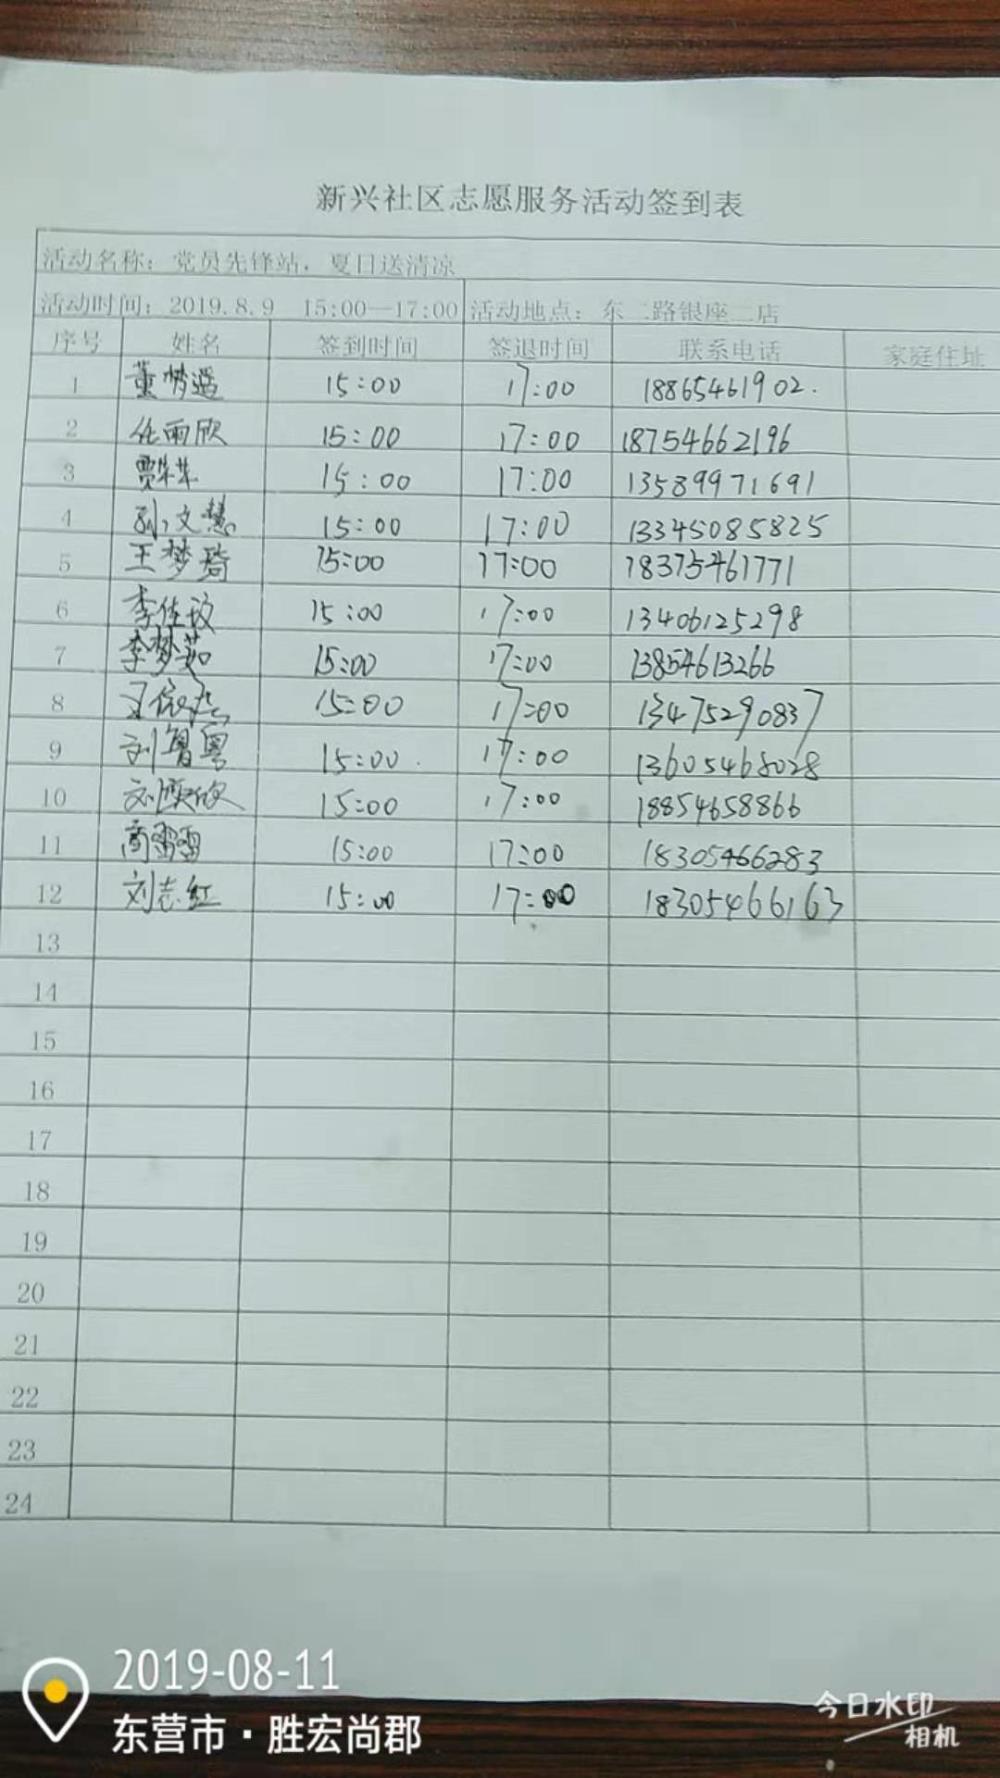 新兴社区志愿服务活动签到表
活动名称：党员先锋站，夏日送清凉
活动时间：2019.8.9 15:00—17:00 活动地点：东二路银座二店
序号 姓名 签到时间 签退时间 联系电话 家庭住址
1 董梦遥 15:00 17:00 18865461902.
2 任雨欣 15:00 17:00 18754662196
3 贾 15:00 17:00 13589971691
4 孙文慧 15:00 17:00 13345085825
5 王梦琦 15:00 17:00 18375461771
6 李佳玟 15:00 17:00 13406125298
7 李梦茹 15:00 17:00 13854613266
8 15:00 17:00 13475290837
9 刘 15:00 17:00 13605468028
10 刘 15:00 17:00 18854658866
11 商雷雷 15:00 17:00 18305466283
12 刘志红 15:00 17:00 18305466163
13
14
15
16
17
18
19
20
21
22
23
24
2019-08-11
东营市·胜宏尚郡
今日水印
相机